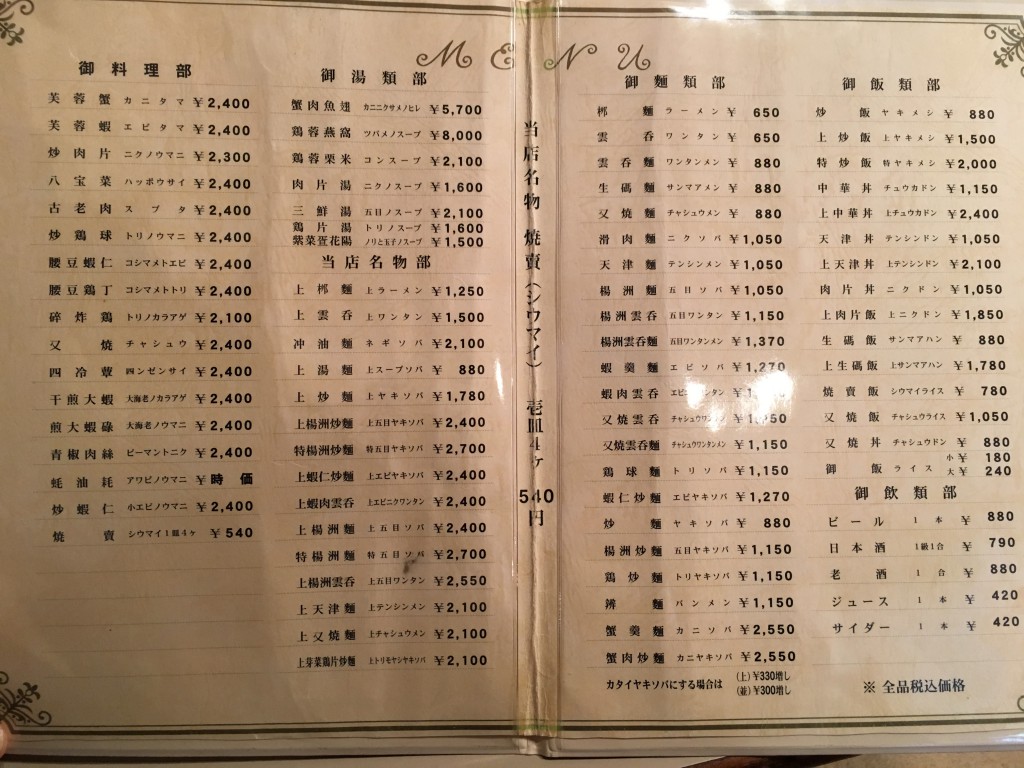 MENU
御料理部
芙蓉蟹 カニタマ ¥2,400
芙蓉蝦 エビタマ ¥2,400
炒肉片 ニクノウマニ ¥2,300
八宝菜 ハッポウサイ ¥2,400
古老肉 スブタ ¥2,400
炒鶏球 トリノウマニ ¥2,400
腰豆蝦仁 コシマメトエビ ¥2,400
腰豆鶏丁 コシマメトトリ ¥2,400
碎炸鶏 トリノカラアゲ ¥2,100
叉焼 チャシュウ ¥2,400
四冷葷 四ンゼンサイ ¥2,400
干煎大蝦 大海老ノカラアゲ ¥2,400
煎大蝦碌 大海老ノウマニ ¥2,400
青椒肉絲 ピーマントニク ¥2,400
蚝油耗 アワビノウマニ ¥時価
炒蝦仁 小エビノウマニ ¥2,400
焼賣 シウマイ1皿4ヶ ¥540
御湯類部
蟹肉魚翅 カニニクサメノヒレ ¥5,700
鶏蓉燕窩 ツバメノスープ ¥8,000
鶏蓉栗米 コンスープ ¥2,100
肉片湯 ニクノスープ ¥1,600
三鮮湯 五目ノスープ ¥2,100
鶏片湯 トリノスープ ¥1,600
紫菜疍花陽 ノリと玉子ノスープ ¥1,500
当店名物部
上梛麺 上ラーメン ¥1,250
上雲呑 上ワンタン ¥1,500
冲油麺 ネギソバ ¥2,100
上湯麺 上スープソバ ¥880
上炒麺 上ヤキソバ ¥1,780
上楊洲炒麺 上五目ヤキソバ ¥2,400
特楊洲炒麺 特五目ヤキソバ ¥2,700
上蝦仁炒麺 上エビヤキソバ ¥2,400
上蝦肉雲呑 上エビニクワンタン ¥2,400
上楊洲麺 上五目ソバ ¥2,400
特楊洲麺 特五目ソバ ¥2,700
上楊洲雲呑 上五目ワンタン ¥2,550
上天津麺 上テンシンメン ¥2,100
上叉焼麺 上チャシュウメン ¥2,100
上芽菜鶏片炒麺 上トリモヤシヤキソバ ¥2,100
当店名物 焼賣(シウマイ) 壱皿4ヶ 540円
御麺類部
梛麺 ラーメン ¥650
雲呑 ワンタン ¥650
雲呑麺 ワンタンメン ¥880
生碼麺 サンマアメン ¥880
叉焼麺 チャシュウメン ¥880
滑肉麺 ニクソバ ¥1,050
天津麺 テンシンメン ¥1,050
楊洲麺 五目ソバ ¥1,050
楊洲雲呑 五目ワンタン ¥1,150
楊洲雲呑麺 五目ワンタンメン ¥1,370
蝦羹麺 エビソバ ¥1,270
蝦肉雲呑 エビニクワンタン
叉焼雲呑 チャシュウワンタン
叉焼雲呑麺 チャシュウワンタンメン ¥1,150
鶏球麺 トリソバ ¥1,150
蝦仁炒麺 エビヤキソバ ¥1,270
炒麺 ヤキソバ ¥880
楊洲炒麺 五目ヤキソバ ¥1,150
鶏炒麺 トリヤキソバ ¥1,150
辨麺 バンメン ¥1,150
蟹羹麺 カニソバ ¥2,550
蟹肉炒麺 カニヤキソバ ¥2,550
カタイヤキソバにする場合は (上)¥330増し
(並)¥300増し
御飯類部
炒飯 ヤキメシ ¥880
上炒飯 上ヤキメシ ¥1,500
特炒飯 特ヤキメシ ¥2,000
中華丼 チュウカドン ¥1,150
上中華丼 上チュウカドン ¥2,400
天津丼 テンシンドン ¥1,050
上天津丼 上テンシンドン ¥2,100
肉片丼 ニクドン ¥1,050
上肉片飯 上ニクドン ¥1,850
生碼飯 サンマアハン ¥880
上生碼飯 上サンマアハン ¥1,780
焼賣飯 シウマイライス ¥780
叉焼飯 チャシュウライス ¥1,050
叉焼丼 チャシュウドン ¥880
御飯 ライス 小¥180
大¥240
御飲類部
ビール 1本 ¥880
日本酒 1級1合 ¥790
老酒 1合 ¥880
ジュース 1本 ¥420
サイダー 1本 ¥420
※ 全品税込価格